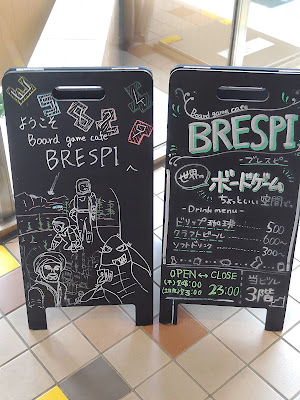 ようこそ
Board game cafe
BRESPI へ
Board game cafe
BRESPI
-ブレスピー-
世界の
ボードゲーム
ちょっといい空間で
-Drink menu-
ドリップ珈琲 500
クラフトビール 600〜
ソフトドリンク 300〜
OPEN ↔ CLOSE
(平)
23:00
当ビル
3階